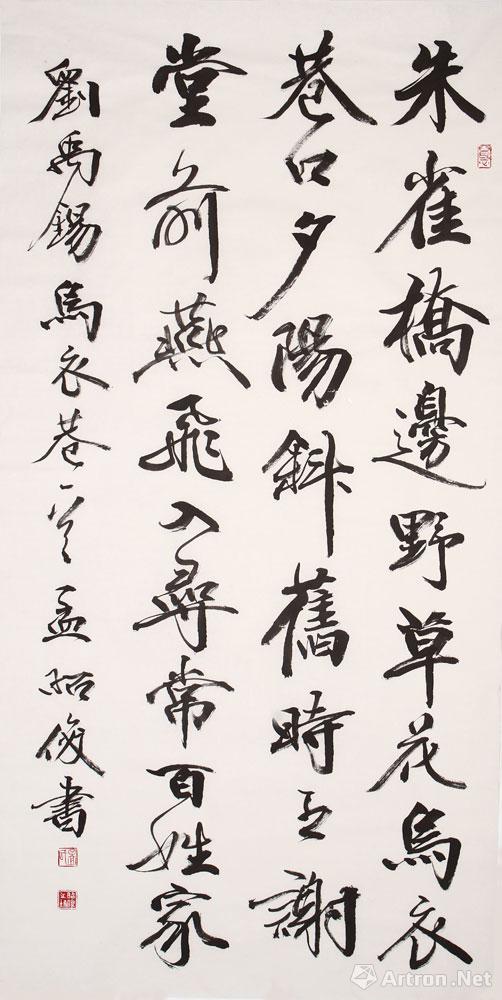 朱雀橋邊野草花烏衣
巷口夕陽斜舊時王謝
堂前燕飛入尋常百姓家
劉禹錫烏衣巷一首孟紹俊書
Artron.Net